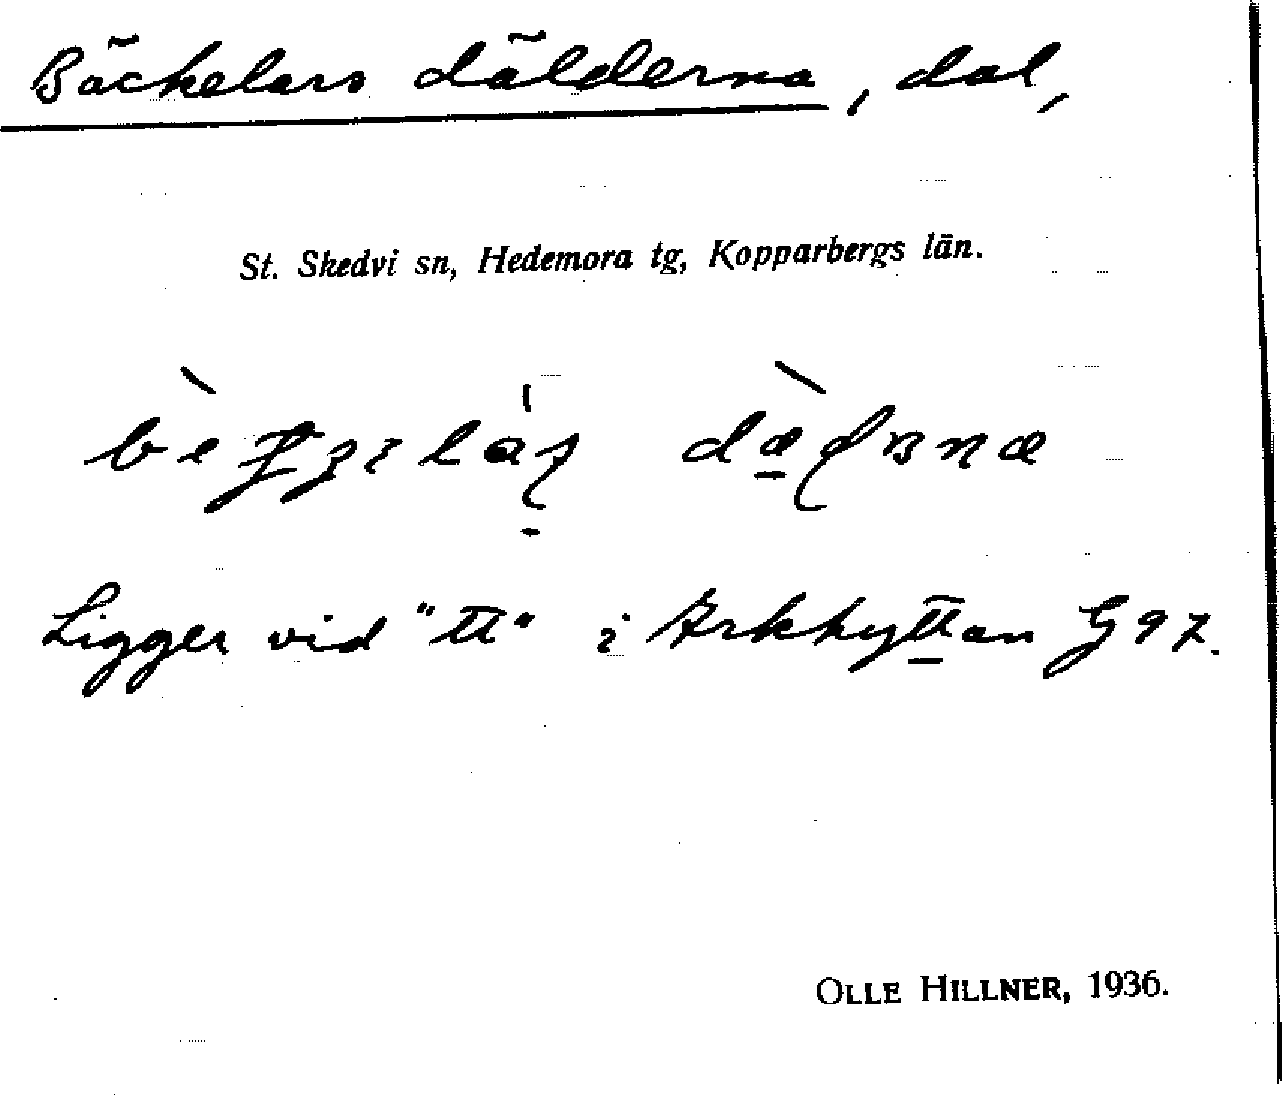 Bäckelars dälderna, dal,
St. Skedvi sn, Hedemora tg, Kopparbergs län.
Ligger vid "tt" i Arkhyttan G 97.
OLLE HILLNER, 1936.